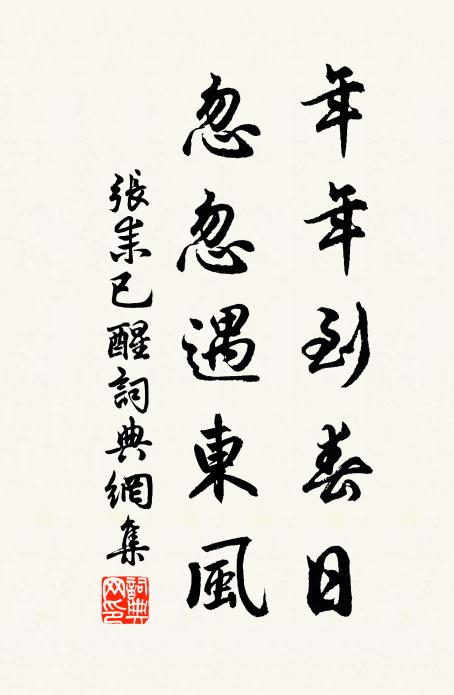 年年到春日
忽忽遇東風
張耒已醒詞典網集
詞典網印